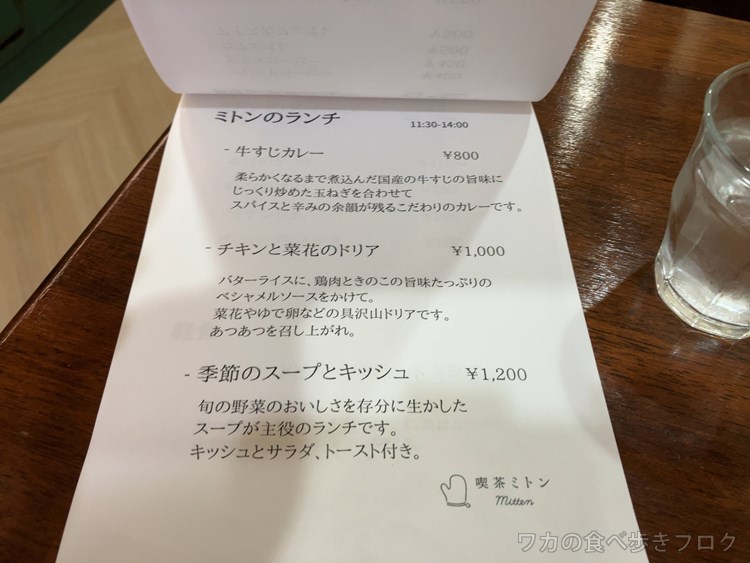 ミトンのランチ 11:30-14:00
- 牛すじカレー ¥800
柔らかくなるまで煮込んだ国産の牛すじの旨味に
じっくり炒めた玉ねぎを合わせて
スパイスと辛みの余韻が残るこだわりのカレーです。
- チキンと菜花のドリア ¥1,000
バターライスに、鶏肉ときのこの旨味たっぷりの
ベシャメルソースをかけて。
菜花やゆで卵などの具沢山ドリアです。
あつあつを召し上がれ。
- 季節のスープとキッシュ ¥1,200
旬の野菜のおいしさを存分に生かした
スープが主役のランチです。
キッシュとサラダ、トースト付き。
喫茶ミトン
Mitten
ワカの食べ歩きブログ